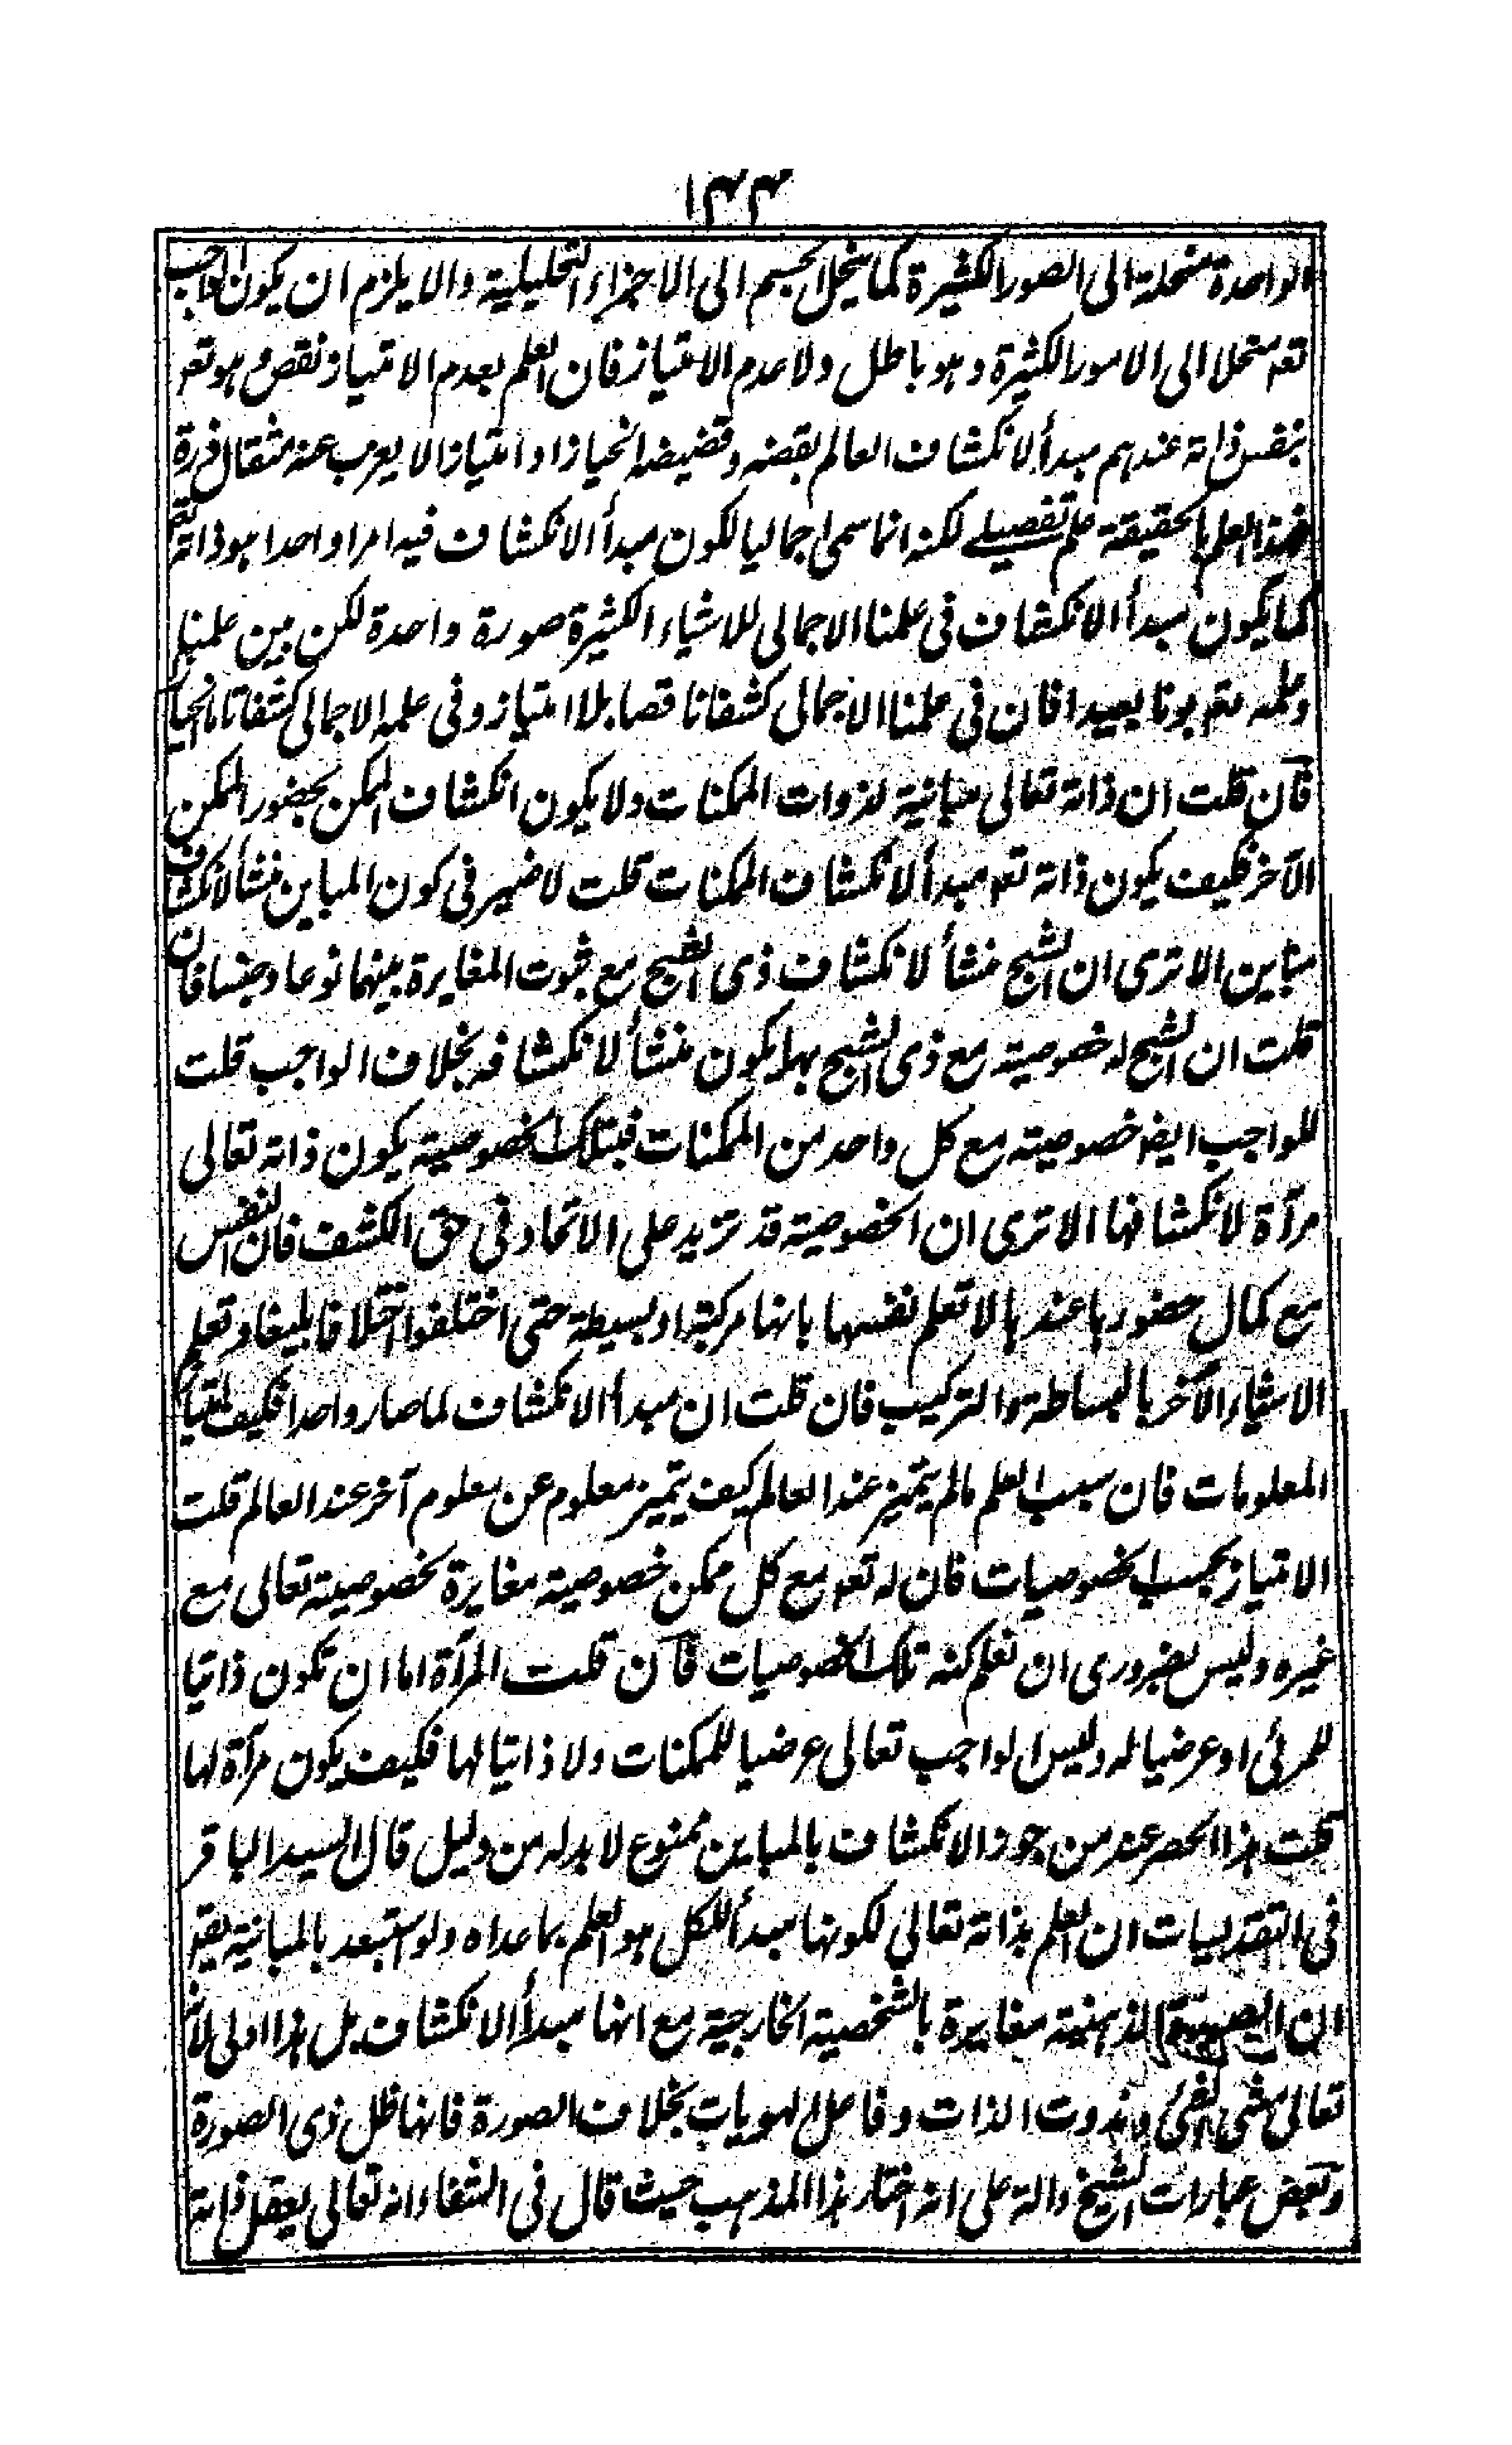 ١٤٤
الواحدة منحلة الى الصور الكثيرة كما ينحل الجسم الى الاجزاء التحليلية والا يلزم ان يكون الواجب
تعه منحلا الى الامور الكثيرة وهو باطل ولا عدم الامتياز فان العلم بعدم الامتياز نقص وهو تعه
بنفس ذاته عندهم مبدأ لانكشاف العالم بقضه وقضيضه انحيازا وامتيازا لا يعزب عنه مثقال ذرة
فهذا العلم بالحقيقة علم تفصيلے لكنه انما سمى اجماليا لكون مبدأ الانكشاف فيه امرا واحدا هو ذاته تعه
كما يكون مبدأ الانكشاف فى علمنا الاجمالى للاشياء الكثيرة صورة واحدة لكن بين علمنا
وعلمه تعه بونا بعيدا فان فى علمنا الاجمالى كشفا ناقصا بلا امتياز وفى علمه الاجمالى كشفا تاما
فان قلت ان ذاته تعالى مباينة لذوات الممكنات ولا يكون انكشاف الممكن بحضور الممكن
الآخر فكيف يكون ذاته تعه مبدأ لانكشاف الممكنات قلت لا ضير فى كون المباين منشأ لانكشاف
مباين الا ترى ان الشبح منشأ لانكشاف ذى الشبح مع ثبوت المغايرة بينهما نوعا وجنسا فان
قلت ان الشبح له خصوصية مع ذى الشبح بها يكون منشأ لانكشافه بخلاف الواجب قلت
للواجب ايضا خصوصية مع كل واحد من الممكنات فبتلك الخصوصية يكون ذاته تعالى
مرآة لانكشافها الا ترى ان الخصوصية قد تزيد على الاتحاد فى حق الكشف فان النفس
مع كمال حضورها عندها لا تعلم نفسها بانها مركبة او بسيطة حتى اختلفوا اختلافا بليغا وتعلم
الاشياء الآخر بالبساطة والتركيب فان قلت ان مبدأ الانكشاف لما صار واحدا فكيف امتياز
المعلومات فان سبب العلم مالم يتميز عند العالم كيف يتميز معلوم عن معلوم آخر عند العالم قلت
الامتياز بحسب الخصوصيات فان له تعه مع كل ممكن خصوصية مغايرة لخصوصية تعالى مع
غيره وليس بضرورى ان نعلم كنه تلك الخصوصيات فان قلت المرآة اما ان تكون ذاتيا
للمرئى او عرضيا له وليس الواجب تعالى عرضيا للممكنات ولا ذاتيا لها فكيف يكون مرآة لها
قلت هذا الحصر عند من جوز الانكشاف بالمباين ممنوع لا بد له من دليل قال السيد الباقر
فى التقديسات ان العلم بذاته تعالى لكونها مبدأ للكل هو العلم بما عداه ولو استبعد بالمباينة يقه
ان الصورة الذهنية مغايرة بالشخصية الخارجية مع انها مبدأ الانكشاف بل هذا اولى لانه
تعالى مشئ الشئ ومذوت الذات وفاعل الهويات بخلاف الصورة فانها ظل ذى الصورة
وبعض عبارات الشيخ دالة على انه اختار هذا المذهب حيث قال فى الشفاء انه تعالى يعقل ذاته